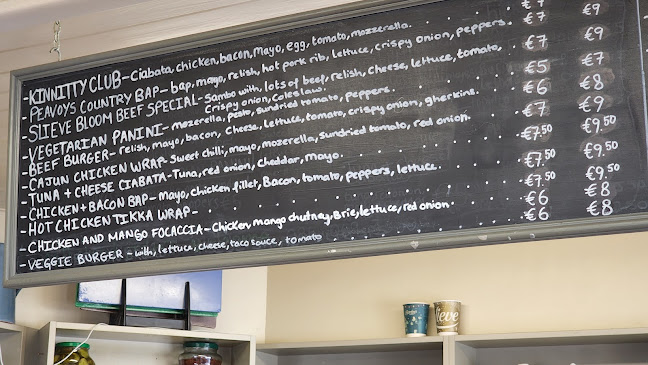 -KINNITTY CLUB-Ciabatta, chicken, bacon, mayo, egg, tomato, mozzerella. €7
-PEAVOYS COUNTRY BAP-bap, mayo, relish, hot pork rib, lettuce, crispy onion, peppers. €7 €9
-SLIEVE BLOOM BEEF SPECIAL-Sambo with, lots of beef, relish, cheese, lettuce, tomato, €7 €9
Crispy onion, Coleslaw.
-VEGETARIAN PANINI-mozerella, pesto, sundried tomato, peppers. €5 €7
-BEEF BURGER-relish, mayo, bacon, cheese, lettuce, tomato, crispy onion, gherkins. €6 €8
-CAJUN CHICKEN WRAP-sweet chilli, mayo, mozerella, sundried tomato, red onion. €7 €9
-TUNA + CHEESE CIABATA-Tuna, red onion, cheddar, mayo. €7.50 €9.50
-CHICKEN + BACON BAP-Mayo, chicken fillet, Bacon, tomato, peppers, lettuce. €7.50 €9.50
-HOT CHICKEN TIKKA WRAP- €7.50 €9.50
-CHICKEN AND MANGO FOCACCIA-Chicken, mango chutney, Brie, lettuce, red onion €6 €8
-VEGGIE BURGER-with, lettuce, cheese, taco sauce, tomato €6 €8
ieve